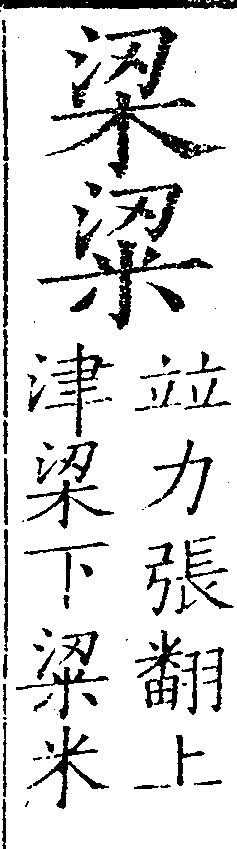 梁粱
竝力張翻上
津梁下粱米